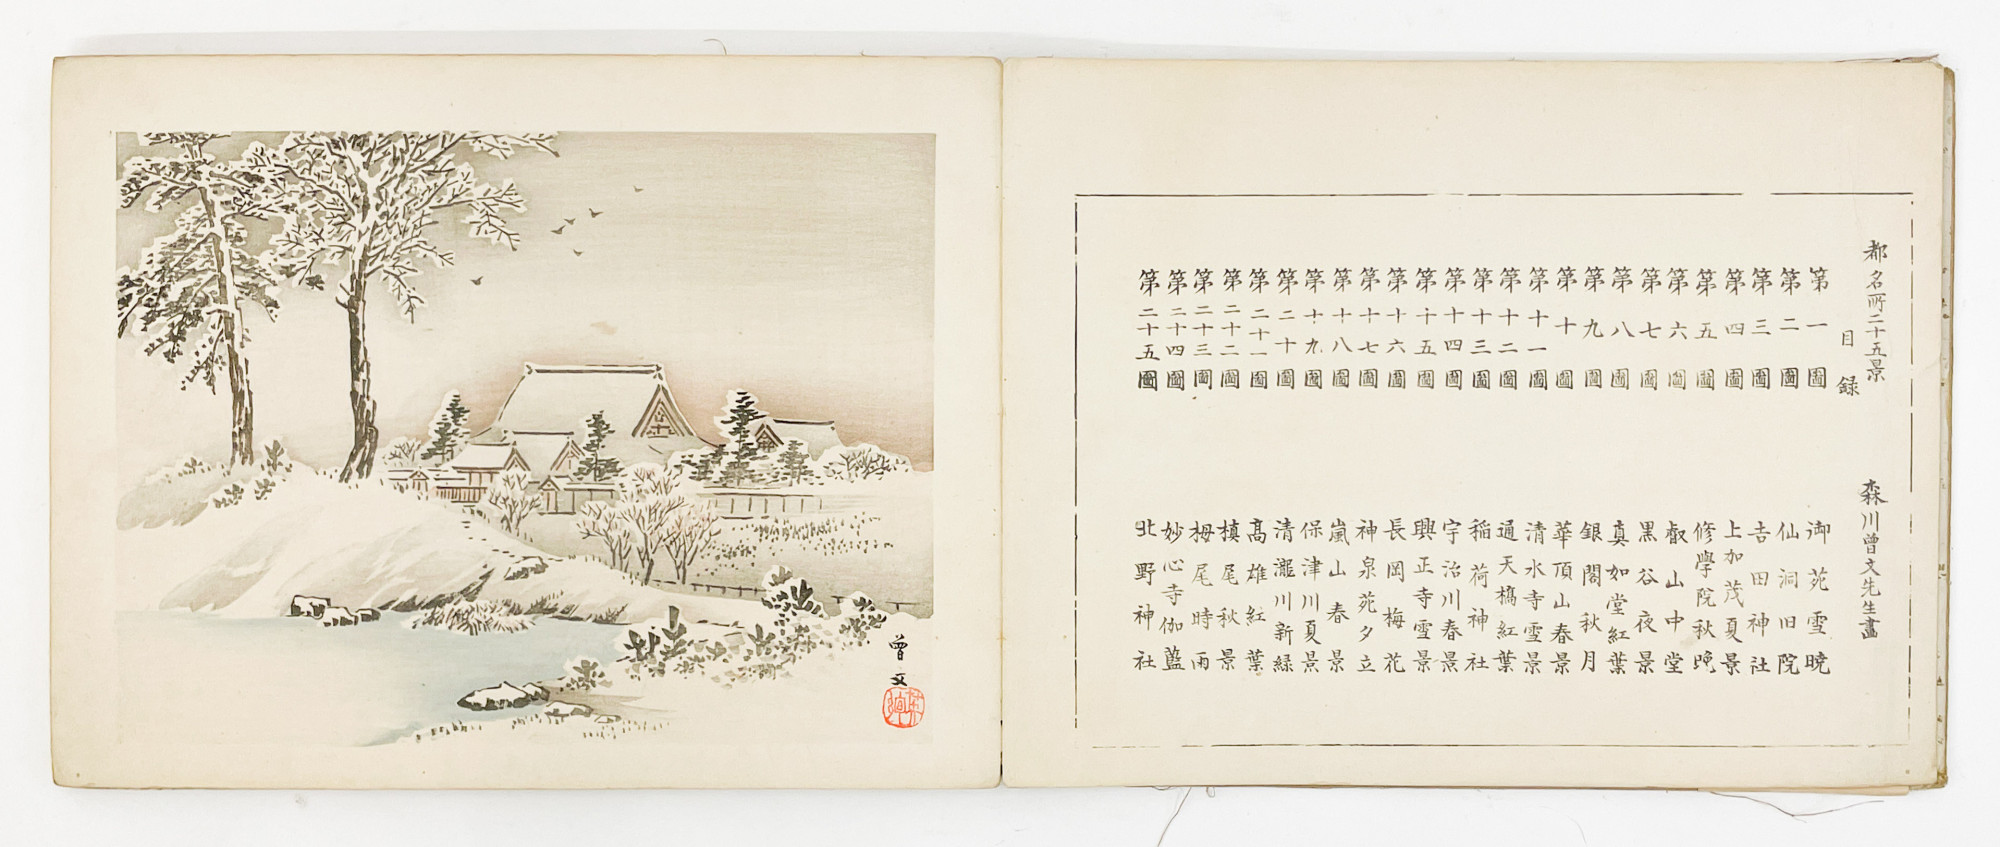 都名所二十五景
目録
森川曾文先生畫
第一圖 御苑雪暁
第二圖 仙洞旧院
第三圖 吉田神社
第四圖 上加茂夏景
第五圖 修學院秋晩
第六圖 叡山中堂
第七圖 黒谷夜景
第八圖 真如堂紅葉
第九圖 銀閣秋月
第十圖 華頂山春景
第十一圖 清水寺雪景
第十二圖 通天橋紅葉
第十三圖 稲荷神社
第十四圖 宇治川春景
第十五圖 興正寺雪景
第十六圖 長岡梅花
第十七圖 神泉苑夕立
第十八圖 嵐山春景
第十九圖 保津川夏景
第二十圖 清瀧川新緑
第二十一圖 高雄紅葉
第二十二圖 槙尾秋景
第二十三圖 栂尾時雨
第二十四圖 妙心寺伽藍
第二十五圖 北野神社
曾文